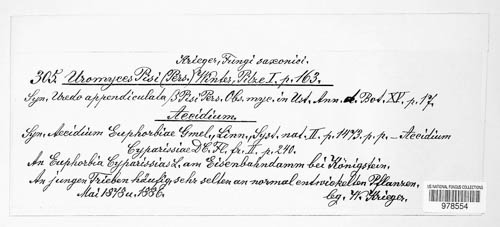 Krieger, Fungi saxonici.
305. Uromyces Pisi (Pers.) Winter, Pilze I. p. 163.
Syn. Uredo appendiculata β Pisi Pers. Obs. myc. in Ust. Ann. d. Bot. XV. p. 17.
Aecidium.
Syn. Aecidium Euphorbiae Gmel., Linn., Syst. nat. II. p. 1473. p. p. – Aecidium
Cyparissiae DC. Fl. fr. II. p. 240.
An Euphorbia Cyparissias L. am Eisenbahndamm bei Königstein.
An jungen Trieben häufig, sehr selten an normal entwickelten Pflanzen.
Mai 1878 u. 1886. leg. W. Krieger.
US NATIONAL FUNGUS COLLECTIONS
978554